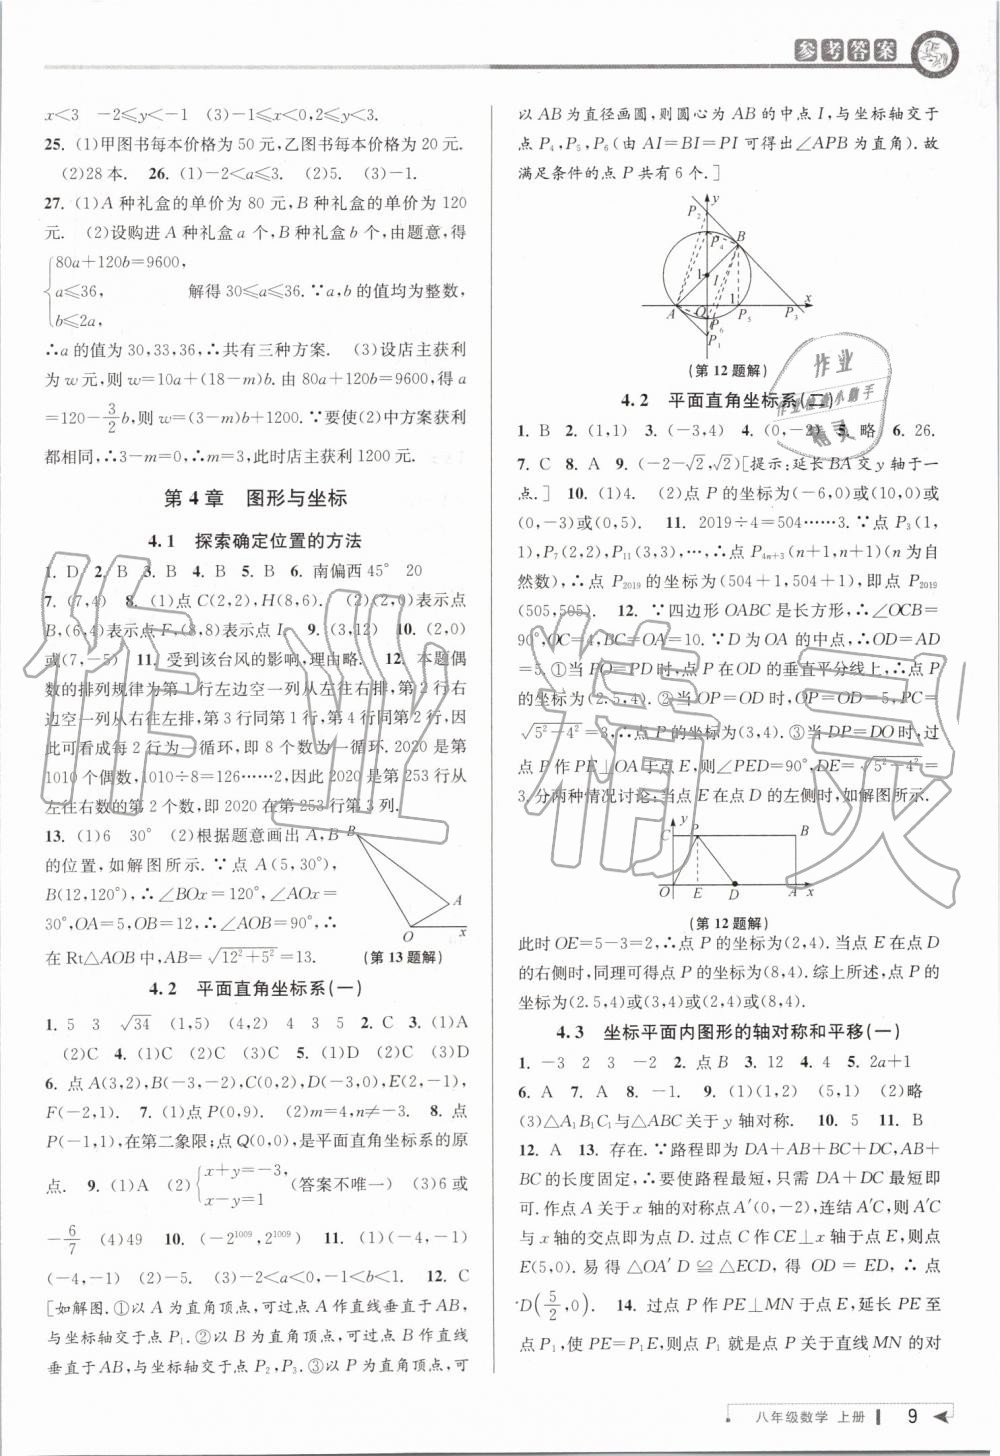 参考答案
x<3　-2≤y<-1　(3)-1≤x<0,2≤y<3.
25. (1)甲图书每本价格为 50 元,乙图书每本价格为 20 元.
(2)28 本.　26. (1)-2<a≤3.　(2)5.　(3)-1.
27. (1)A 种礼盒的单价为 80 元,B 种礼盒的单价为 120
元.　(2)设购进 A 种礼盒 a 个,B 种礼盒 b 个,由题意,得
{80a+120b=9600,
a≤36,　解得 30≤a≤36.∵a,b 的值均为整数,
b≤2a,
∴a 的值为 30,33,36,∴共有三种方案.　(3)设店主获利
为 w 元,则 w=10a+(18-m)b.由 80a+120b=9600,得 a
=120-3/2b,则 w=(3-m)b+1200.∵要使(2)中方案获利
都相同,∴3-m=0,∴m=3,此时店主获利 1200 元.
第 4 章　图形与坐标
4.1　探索确定位置的方法
1. D　2. B　3. B　4. B　5. B　6. 南偏西 45°　20
7. (7,4)　8. (1)点 C(2,2),H(8,6).　(2)(2,0)表示点
B,(6,4)表示点 F,(8,8)表示点 I.　9. (3,12)　10. (2,0)
或(7,-5)　11. 受到该台风的影响,理由略.　12. 本题偶
数的排列规律为第 1 行左边空一列从左往右排,第 2 行右
边空一列从右往左排,第 3 行同第 1 行,第 4 行同第 2 行,因
此可看成每 2 行为一循环,即 8 个数为一循环.2020 是第
1010 个偶数,1010÷8=126……2,因此 2020 是第 253 行从
左往右数的第 2 个数,即 2020 在第 253 行第 3 列.
13. (1)6　30°　(2)根据题意画出 A,B
的位置,如解图所示.∵点 A(5,30°),
B(12,120°),∴∠BOx=120°,∠AOx=
30°,OA=5,OB=12,∴∠AOB=90°,∴
在 Rt△AOB 中,AB=√(12²+5²)=13.
B
A
O
x
(第 13 题解)
4.2　平面直角坐标系(一)
1. 5　3　√34　(1,5)　(4,2)　4　3　5　2. C　3. (1)A
(2)C　4. (1)C　(2)C　(3)C　5. (1)D　(2)C　(3)D
6. 点 A(3,2),B(-3,-2),C(0,2),D(-3,0),E(2,-1),
F(-2,1).　7. (1)点 P(0,9).　(2)m=4,n≠-3.　8. 点
P(-1,1),在第二象限;点 Q(0,0),是平面直角坐标系的原
点.　9. (1)A　(2){x+y=-3,
x-y=1　(答案不唯一)　(3)6 或
-6/7　(4)49　10. (-2¹⁰⁰⁹,2¹⁰⁰⁹)　11. (1)(-4,-1)
(-4,-1)　(2)-5.　(3)-2<a<0,-1<b<1.　12. C
[如解图.①以 A 为直角顶点,可过点 A 作直线垂直于 AB,
与坐标轴交于点 P₁.②以 B 为直角顶点,可过点 B 作直线
垂直于 AB,与坐标轴交于点 P₂,P₃.③以 P 为直角顶点,可
以 AB 为直径画圆,则圆心为 AB 的中点 I,与坐标轴交于
点 P₄,P₅,P₆(由 AI=BI=PI 可得出∠APB 为直角).故
满足条件的点 P 共有 6 个.]
y
P₂
P₄
B
1
I
A
O
1
P₅
P₃
x
P₆
P₁
(第 12 题解)
4.2　平面直角坐标系(二)
1. B　2. (1,1)　3. (-3,4)　4. (0,-2)　5. 略　6. 26.
7. C　8. A　9. (-2-√2,√2)[提示:延长 BA 交 y 轴于一
点.]　10. (1)4.　(2)点 P 的坐标为(-6,0)或(10,0)或
(0,-3)或(0,5).　11. 2019÷4=504……3.∵点 P₃(1,
1),P₇(2,2),P₁₁(3,3),…,∴点 P₄ₙ₊₃(n+1,n+1)(n 为自
然数),∴点 P₂₀₁₉ 的坐标为(504+1,504+1),即点 P₂₀₁₉
(505,505).　12. ∵四边形 OABC 是长方形,∴∠OCB=
90°,OC=4,BC=OA=10.∵D 为 OA 的中点,∴OD=AD
=5.①当 PO=PD 时,点 P 在 OD 的垂直平分线上,∴点 P
的坐标为(2.5,4).②当 OP=OD 时,OP=OD=5,PC=
√(5²-4²)=3,∴点 P 的坐标为(3,4).③当 DP=DO 时,过
点 P 作 PE⊥OA 于点 E,则∠PED=90°,DE=√(5²-4²)=
3.分两种情况讨论:当点 E 在点 D 的左侧时,如解图所示.
y
C
P
B
O
E
D
A
x
(第 12 题解)
此时 OE=5-3=2,∴点 P 的坐标为(2,4).当点 E 在点 D
的右侧时,同理可得点 P 的坐标为(8,4).综上所述,点 P 的
坐标为(2.5,4)或(3,4)或(2,4)或(8,4).
4.3　坐标平面内图形的轴对称和平移(一)
1. -3　2　3　-2　2. 点 B　3. 12　4. 4　5. 2a+1
6. A　7. A　8. -1.　9. (1)(1,2)　(5,1)　(2)略
(3)△A₁B₁C₁与△ABC 关于 y 轴对称.　10. 5　11. B
12. A　13. 存在.∵路程即为 DA+AB+BC+DC,AB+
BC 的长度固定,∴要使路程最短,只需 DA+DC 最短即
可.作点 A 关于 x 轴的对称点 A′(0,-2),连结 A′C,则 A′C
与 x 轴的交点即为点 D.过点 C 作 CE⊥x 轴于点 E,则点
E(5,0).易得△OA′D≌△ECD,得 OD=ED,∴点
D(5/2,0).　14. 过点 P 作 PE⊥MN 于点 E,延长 PE 至
点 P₁,使 PE=P₁E,则点 P₁ 就是点 P 关于直线 MN 的对
八年级数学 上册　9
作业精灵
作业
精灵